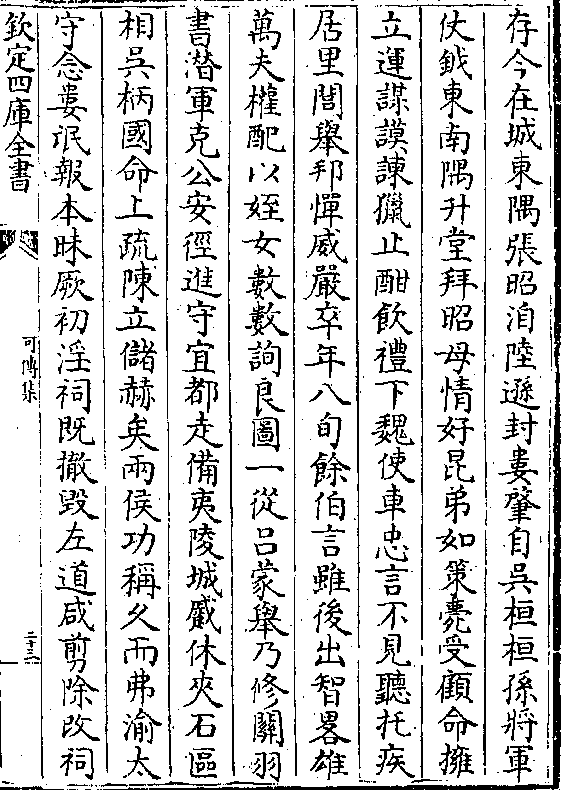 存今在城東隅張昭洎陸遜封婁肇自吳桓桓孫將軍
仗鉞東南隅升堂拜昭母情好昆弟如策薨受顧命擁
立運謀謨諫獵止酣飲禮下魏使車忠言不見聽托疾
居里閭舉邦憚威嚴卒年八旬餘伯言雖後出智畧雄
萬夫權配以姪女數數詢良圖一從呂蒙舉乃修關羽
書潛軍克公安徑進守宜都走備夷陵城蹙休夾石區
相吳柄國命上疏陳立儲赫矣兩侯功稱久而弗渝太
守念婁氓報本昧厥初淫祠既撤毀左道咸剪除改祠
欽定四庫全書
可傳集
二十三